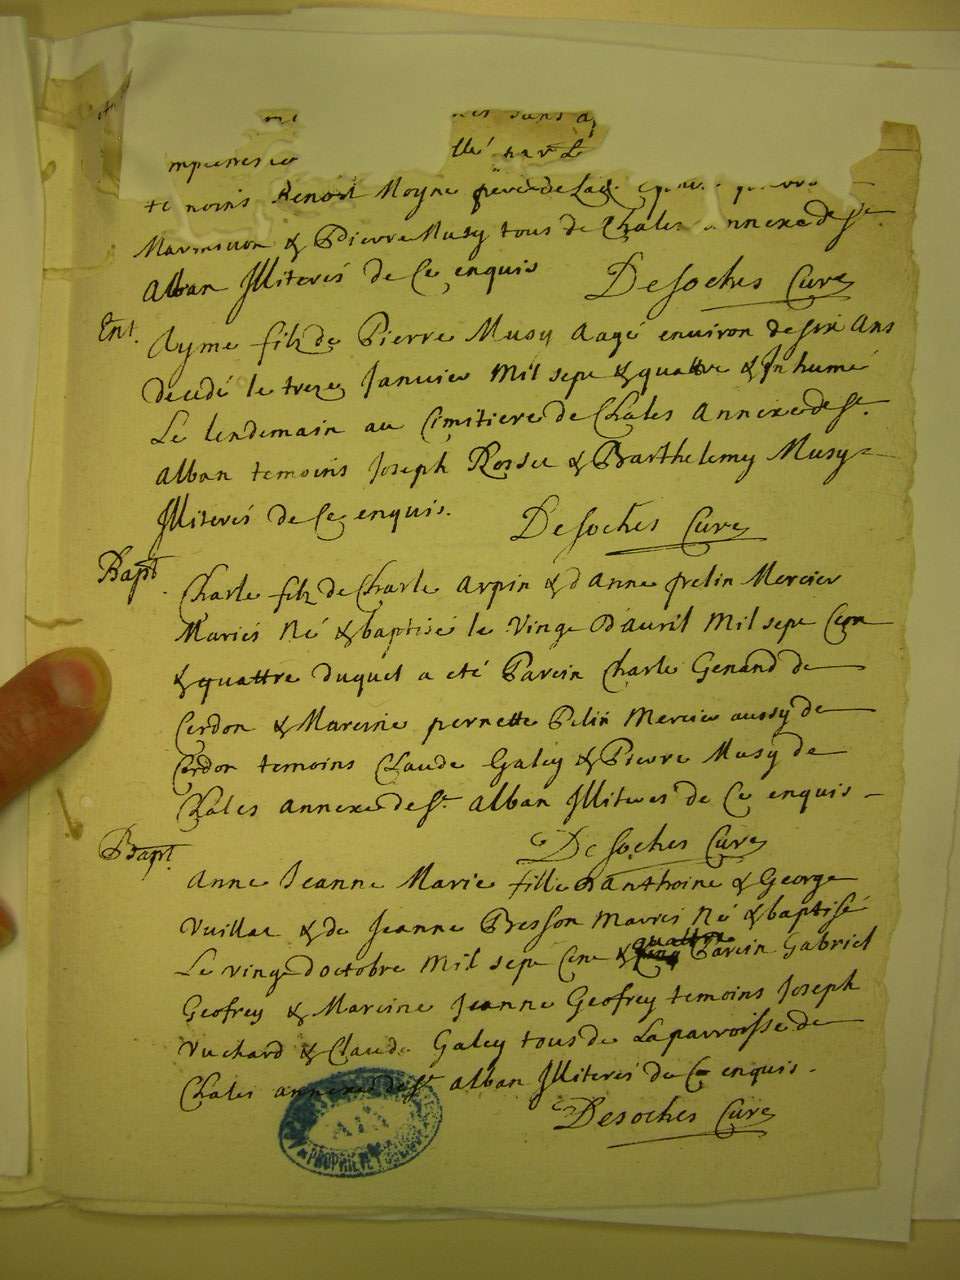 sans
temoins Benoist Moyne
Marmiuon & Pierre Musy tous de Chales annexe de St.
Alban Illiterés de Ce enquis Desoches Curé
Ent. Ayme filz de Pierre Musy Aagé enuiron de six Ans
decedé le treze Januier Mil sept & quattre & Inhumé
Le lendemain au Cimitiere de Chales Annexe de St.
Alban temoins Joseph Rosset & Barthelemy Musy
Illiterés de Ce enquis. Desoches Curé
Bapt. Charle filz de Charle Arpin & d'Anne prelin Mercier
Mariés Né & baptisé le Vingt D'auril Mil sept Cen
& quattre duquel a eté Parein Charle Genand de
Cerdon & Mareine pernette Pelin Mercier aussy de
Cerdon temoins Claude Galey & Pierre Musy de
Chales annexe de St. Alban Illiteres de Ce enquis
Desoches Curé
Bapt. Anne Jeanne Marie fille D'anthoine & George
Vuillat & de Jeanne Bresson Mariés Né & baptisé
Le vingt d'octobre Mil sept Cent & quattre Parein Gabriel
Geofrey & Mareine Jeanne Geofrey temoins Joseph
Vuchard & Claude Galey tous de La parroisse de
Chales annexe de St. Alban Illiterés de Ce enquis.
Desoches Curé
AIN
PROPRIÉTÉ